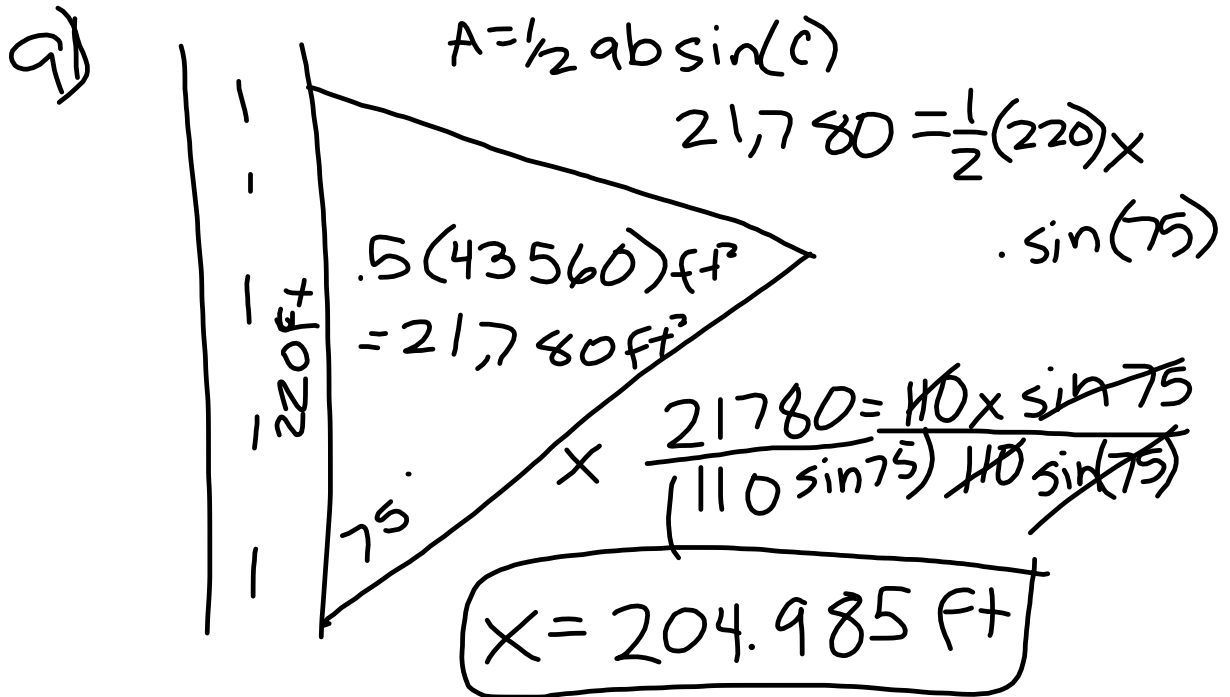 a)
A=1/2 ab sin(C)
21,780 = 1/2 (220)x
· sin(75)
.5(43560)ft²
= 21,780 ft²
220ft
75°
x
21780 = 110x sin 75
(110 sin75) 110 sin(75)
x = 204.985 ft